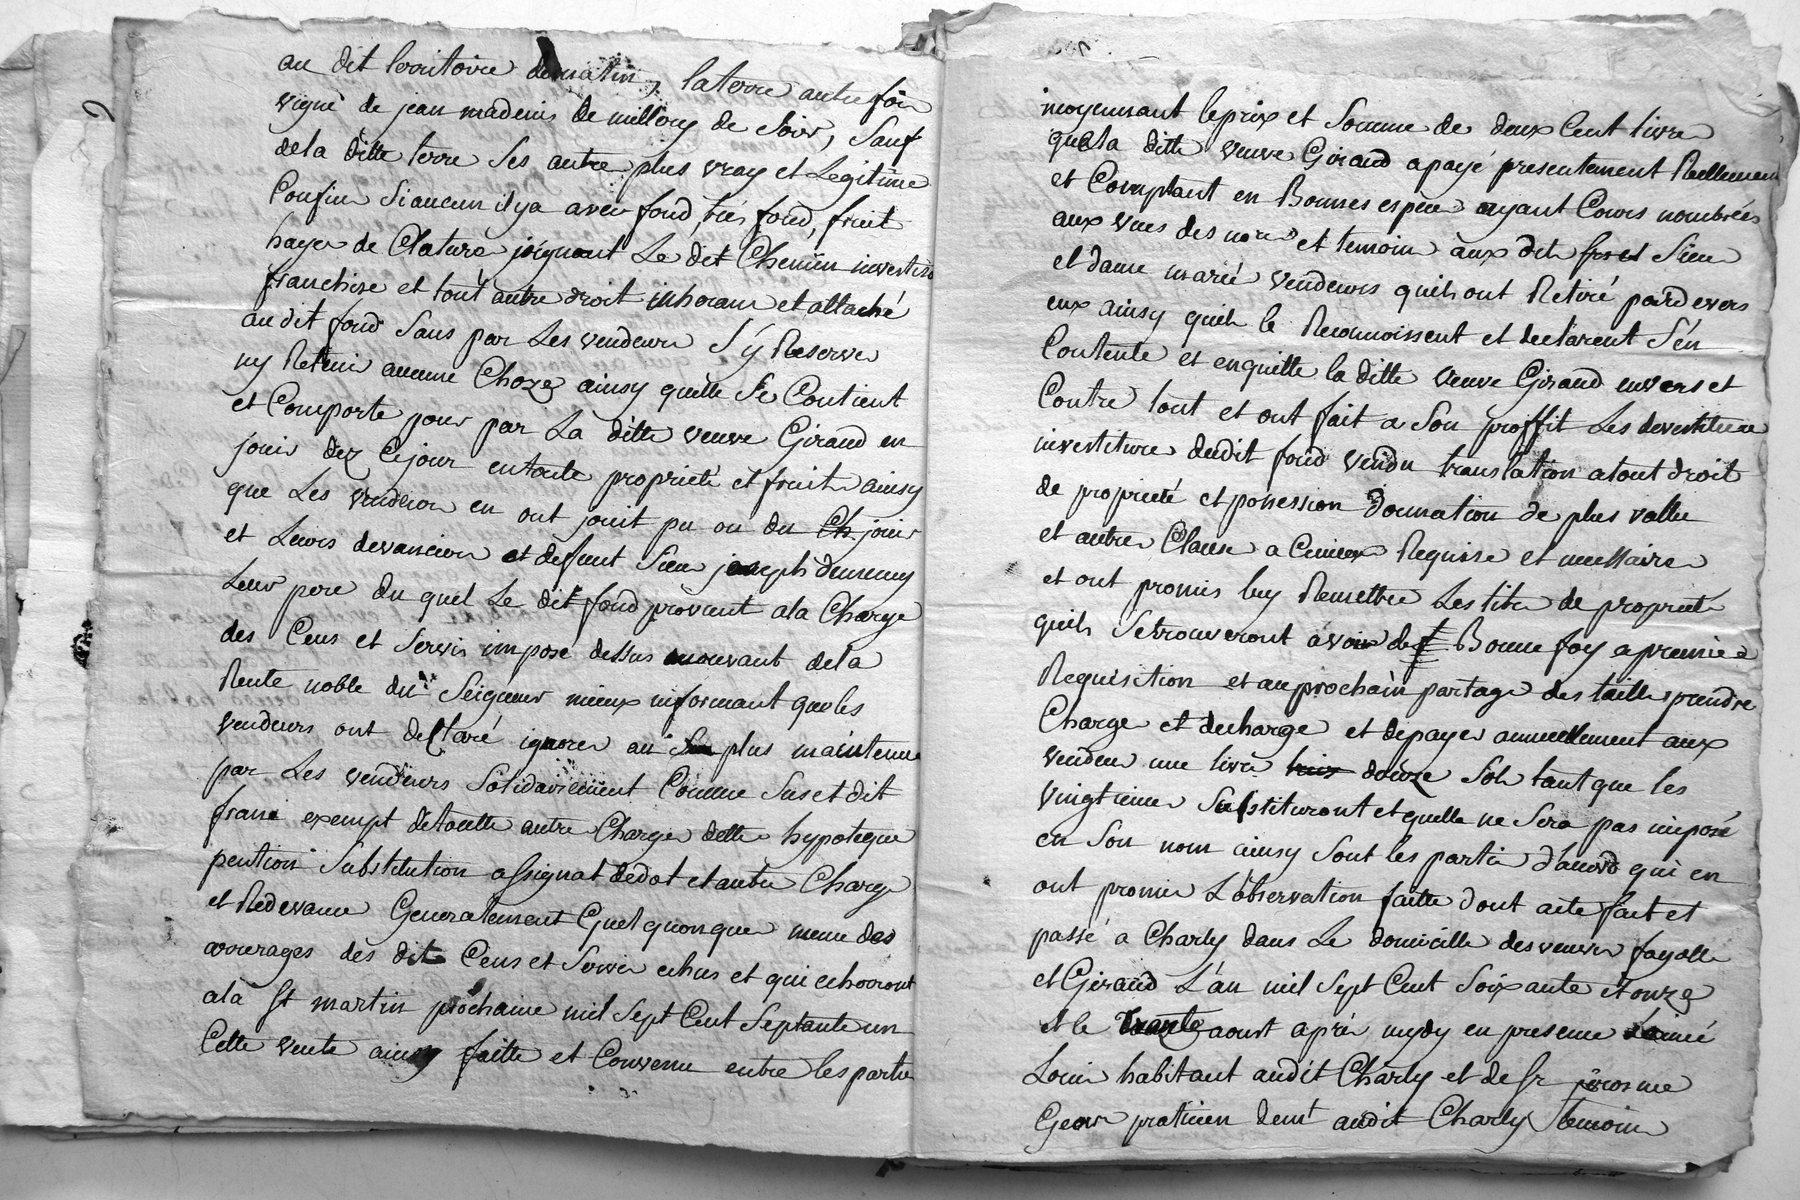 au dit territoire de matin, la terre autre foir
vigne de jean madenis de millery de soir, Sauf
dela ditte terre Ses autre plus vray et Legitime
Confin Si aucun il y a avec fond, très fond, fruit
hayer de Clature joignant Le dit Chemin investison
franchise et tout autre droit inherant et attaché
audit fond Sans par Les vendeur S'y Reserver
ny Retenir aucune Choze ainsy quelle Se Contient
et Comporte pour par La ditte veuve Giraud en
jouir dez Cejour en toute proprieté et fruit ainsy
que Les vendeur en ont jouit pu ou du Ch jouir
et Leurs devancier et defunt Sieur joseph
Leur pere du quel Le dit fond provient ala Charge
des Cens et Servis imposé dessus mouvant dela
Rente noble du Seigneur mieux informant que les
vendeurs ont declaré ignorer au plus maintenue
par Les vendeurs Solidairement Comme Sus et dit
franc exempt detoutte autre Charge dette hypoteque
pention Substitution assignat dedot et autre Charge
et Redevance Generalement Quelquonque meme des
arrerages des dit Cens et Servis echus et qui echoeront
ala St martin prochaine mil Sept Cent Septante un
Cette vente ainsy faitte et Convenue entre les partie
moyennant le prix et Somme de deux Cent livre
quela ditte veuve Giraud a payé presentement Reellement
et Comptant en Bonnes espece ayant Cours nombrées
aux vues des nore et temoin aux dit Sieur
et dame marié vendeurs quils ont Retiré pardevers
eux ainsy quils le Reconnoissent et declarent S'en
Contente et en quitte la ditte veuve Giraud envers et
Contre tout et ont fait a Son proffit Les devestiture
investiture dudit fond vendu translation atout droit
de proprieté et possession Donnation de plus vallue
et autre Clause a Requise et necessaire
et ont promis luy Remettre Les titre de proprieté
quils Se trouveront avoir de Bonne foy a premiere
Requisition et au prochain partage des taille prendre
Charge et decharge et depayer annuellement aux
vendeur une livre douze Sols tant que les
vingtieme Subsisteront et quelle ne Sera pas imposé
en Son nom ainsy Sont les partie d'accord qui en
ont promis L'observation faitte dont acte fait et
passé a Charly dans Le domicille des veuves fayolle
et Giraud L'an mil Sept Cent Soixante et onze
et le trente aoust après mydy en presence
Louis habitant audit Charly et de Sr jerosme
Geour praticien demt audit Charly temoin